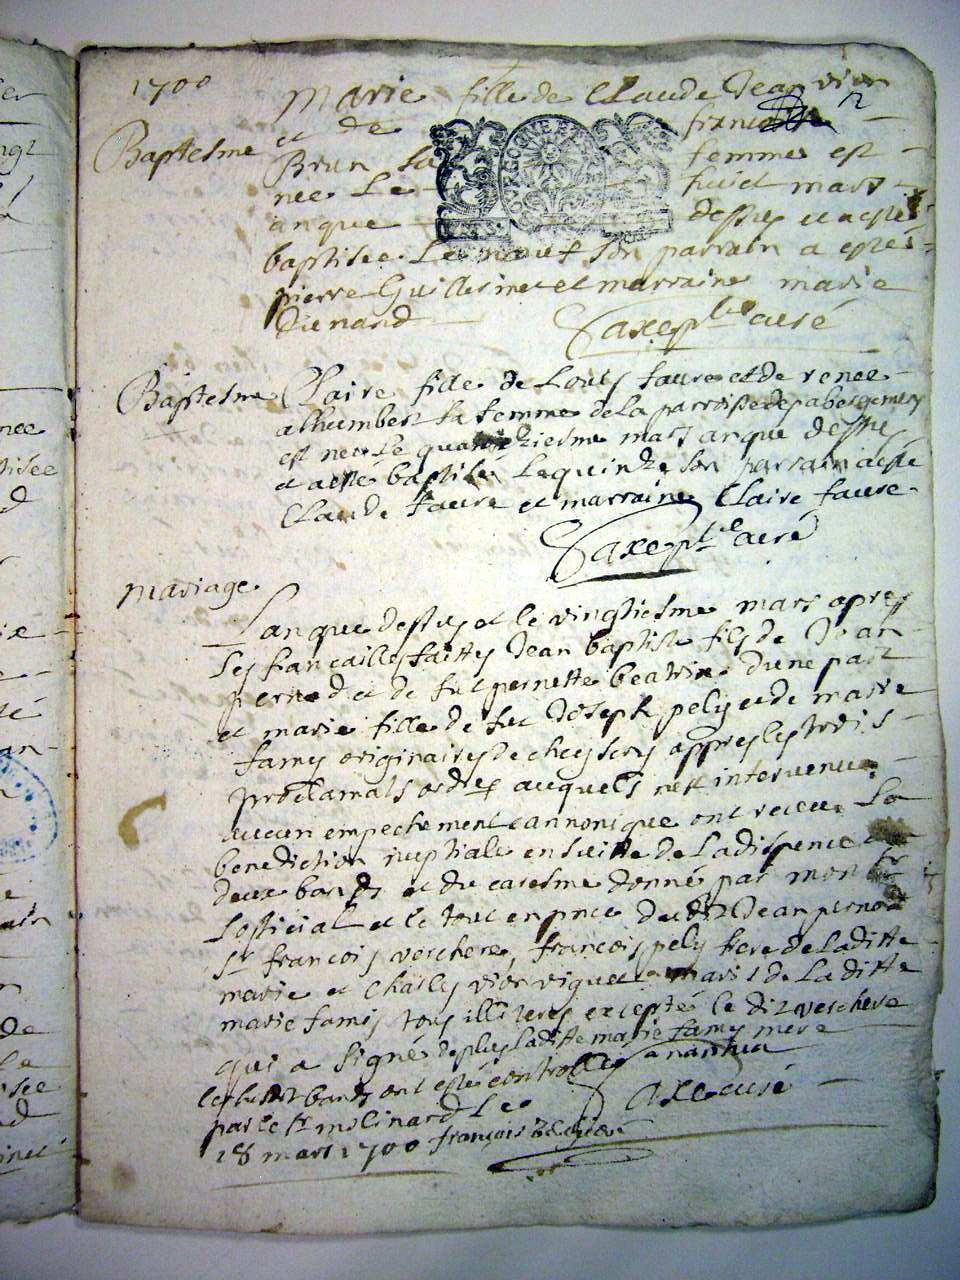 1700
Marie fille de Claude Jean vion
Baptesme
et de françoise
Brun sa femme est
nee Le huict mars
anque dessus et a esté
baptisee Le neuf son parrain a esté
pierre Guillermet et marraine marie
Dunand
Saxe pbre curé
Baptesme
Claire fille de Louis faure et de renee
alhumbert sa femme de la parroisse
est nee Le quatorziesme mars anque dessus
et a esté baptisee Le quinze son parrain a esté
Claude faure et marraine Claire faure
Saxe pbre curé
mariage
Lan que dessus et le vingtiesme mars apres
Les fiancailles faittes Jean baptiste fils de Jean
pernod et de fut pernette beatrix d'une part
et marie fille de fut Joseph pely et de marie
famy originaires de cheysery appres les trois
proclamats ordres auquels nest intervenu
aucun empechement cannonique ont receu La
benediction nuptiale en suitte de La dispence
deux bands et du caresme donné par mons
Lofficial et le tout en pnce dudit Jean pernod
Sr francois verchere, francois pely frere de Laditte
marie et Charles vion viguet mari de La ditte
marie famy tous illiteres excepté le dit verchere
qui a signé de plus laditte marie famy mere
lesdits bands ont esté controlles a nantua
par le Sr molinard Le Saxe curé
18 mars 1700 françois